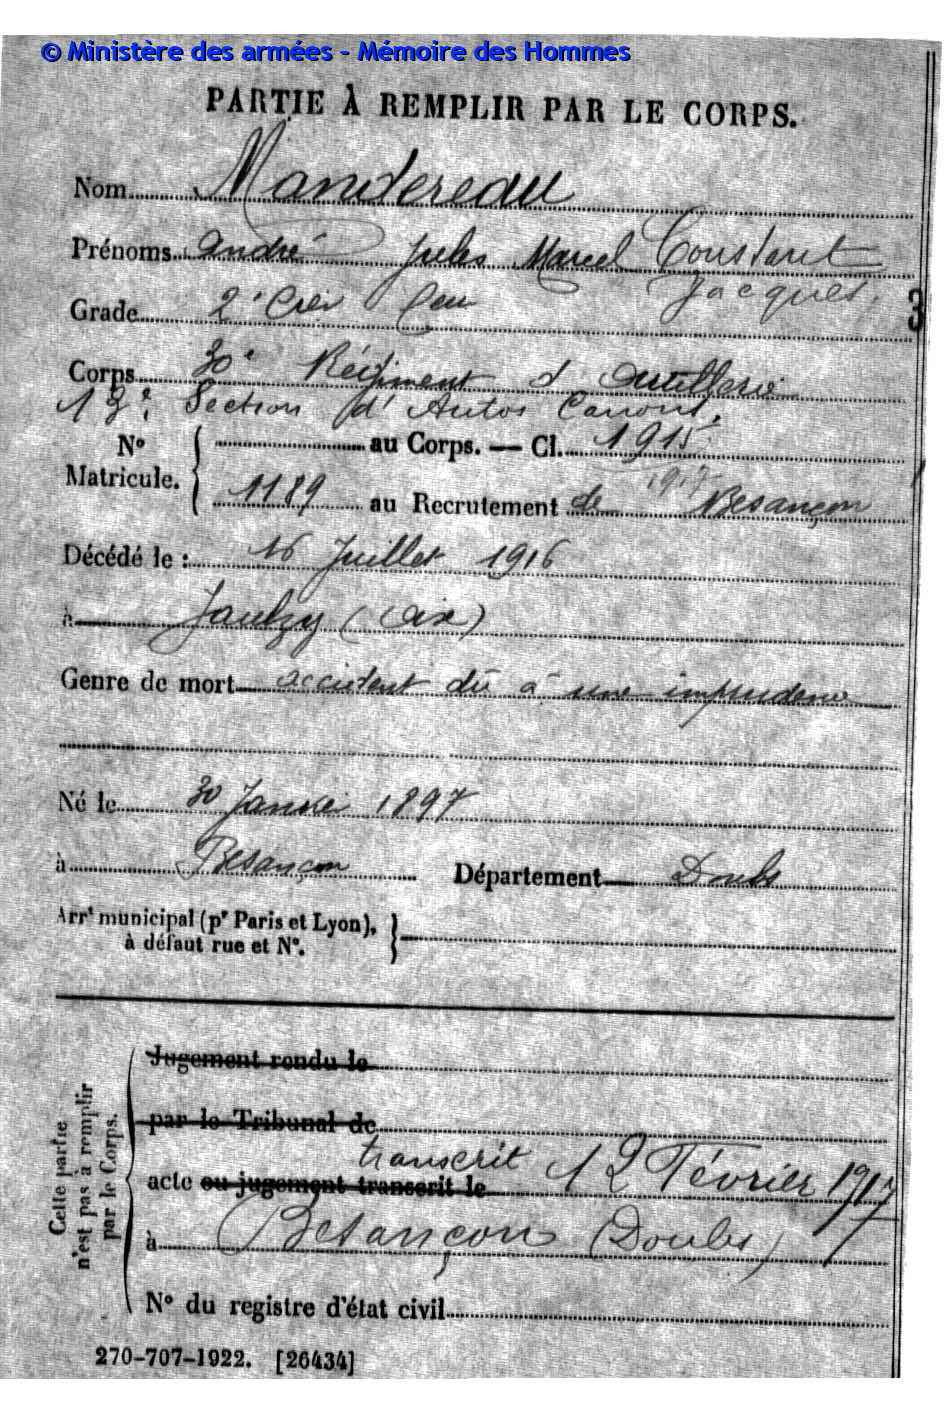 © Ministère des armées - Mémoire des Hommes
PARTIE À REMPLIR PAR LE CORPS.
Nom Mandereau
Prénoms André Jules Marcel Constant
Jacques.
Grade 2e Cer
3
Corps 30e Régiment d'Artillerie
18e. Section d'Autos Canons.
N° Matricule. { au Corps. — Cl. 1915
1917
1189 au Recrutement de Besançon
Décédé le : 16 Juillet 1916
à Jaulzy (Oise)
Genre de mort accident dû à une imprudence
Né le 30 Janvier 1897
à Besançon Département Doubs
Arrt municipal (pr Paris et Lyon), à défaut rue et N°. }
Cette partie n'est pas à remplir par le Corps.
Jugement rendu le
par le Tribunal de
transcrit
acte ou jugement transcrit le 12 Février 1917
à Besançon (Doubs)
N° du registre d'état civil
270-707-1922. [26434]